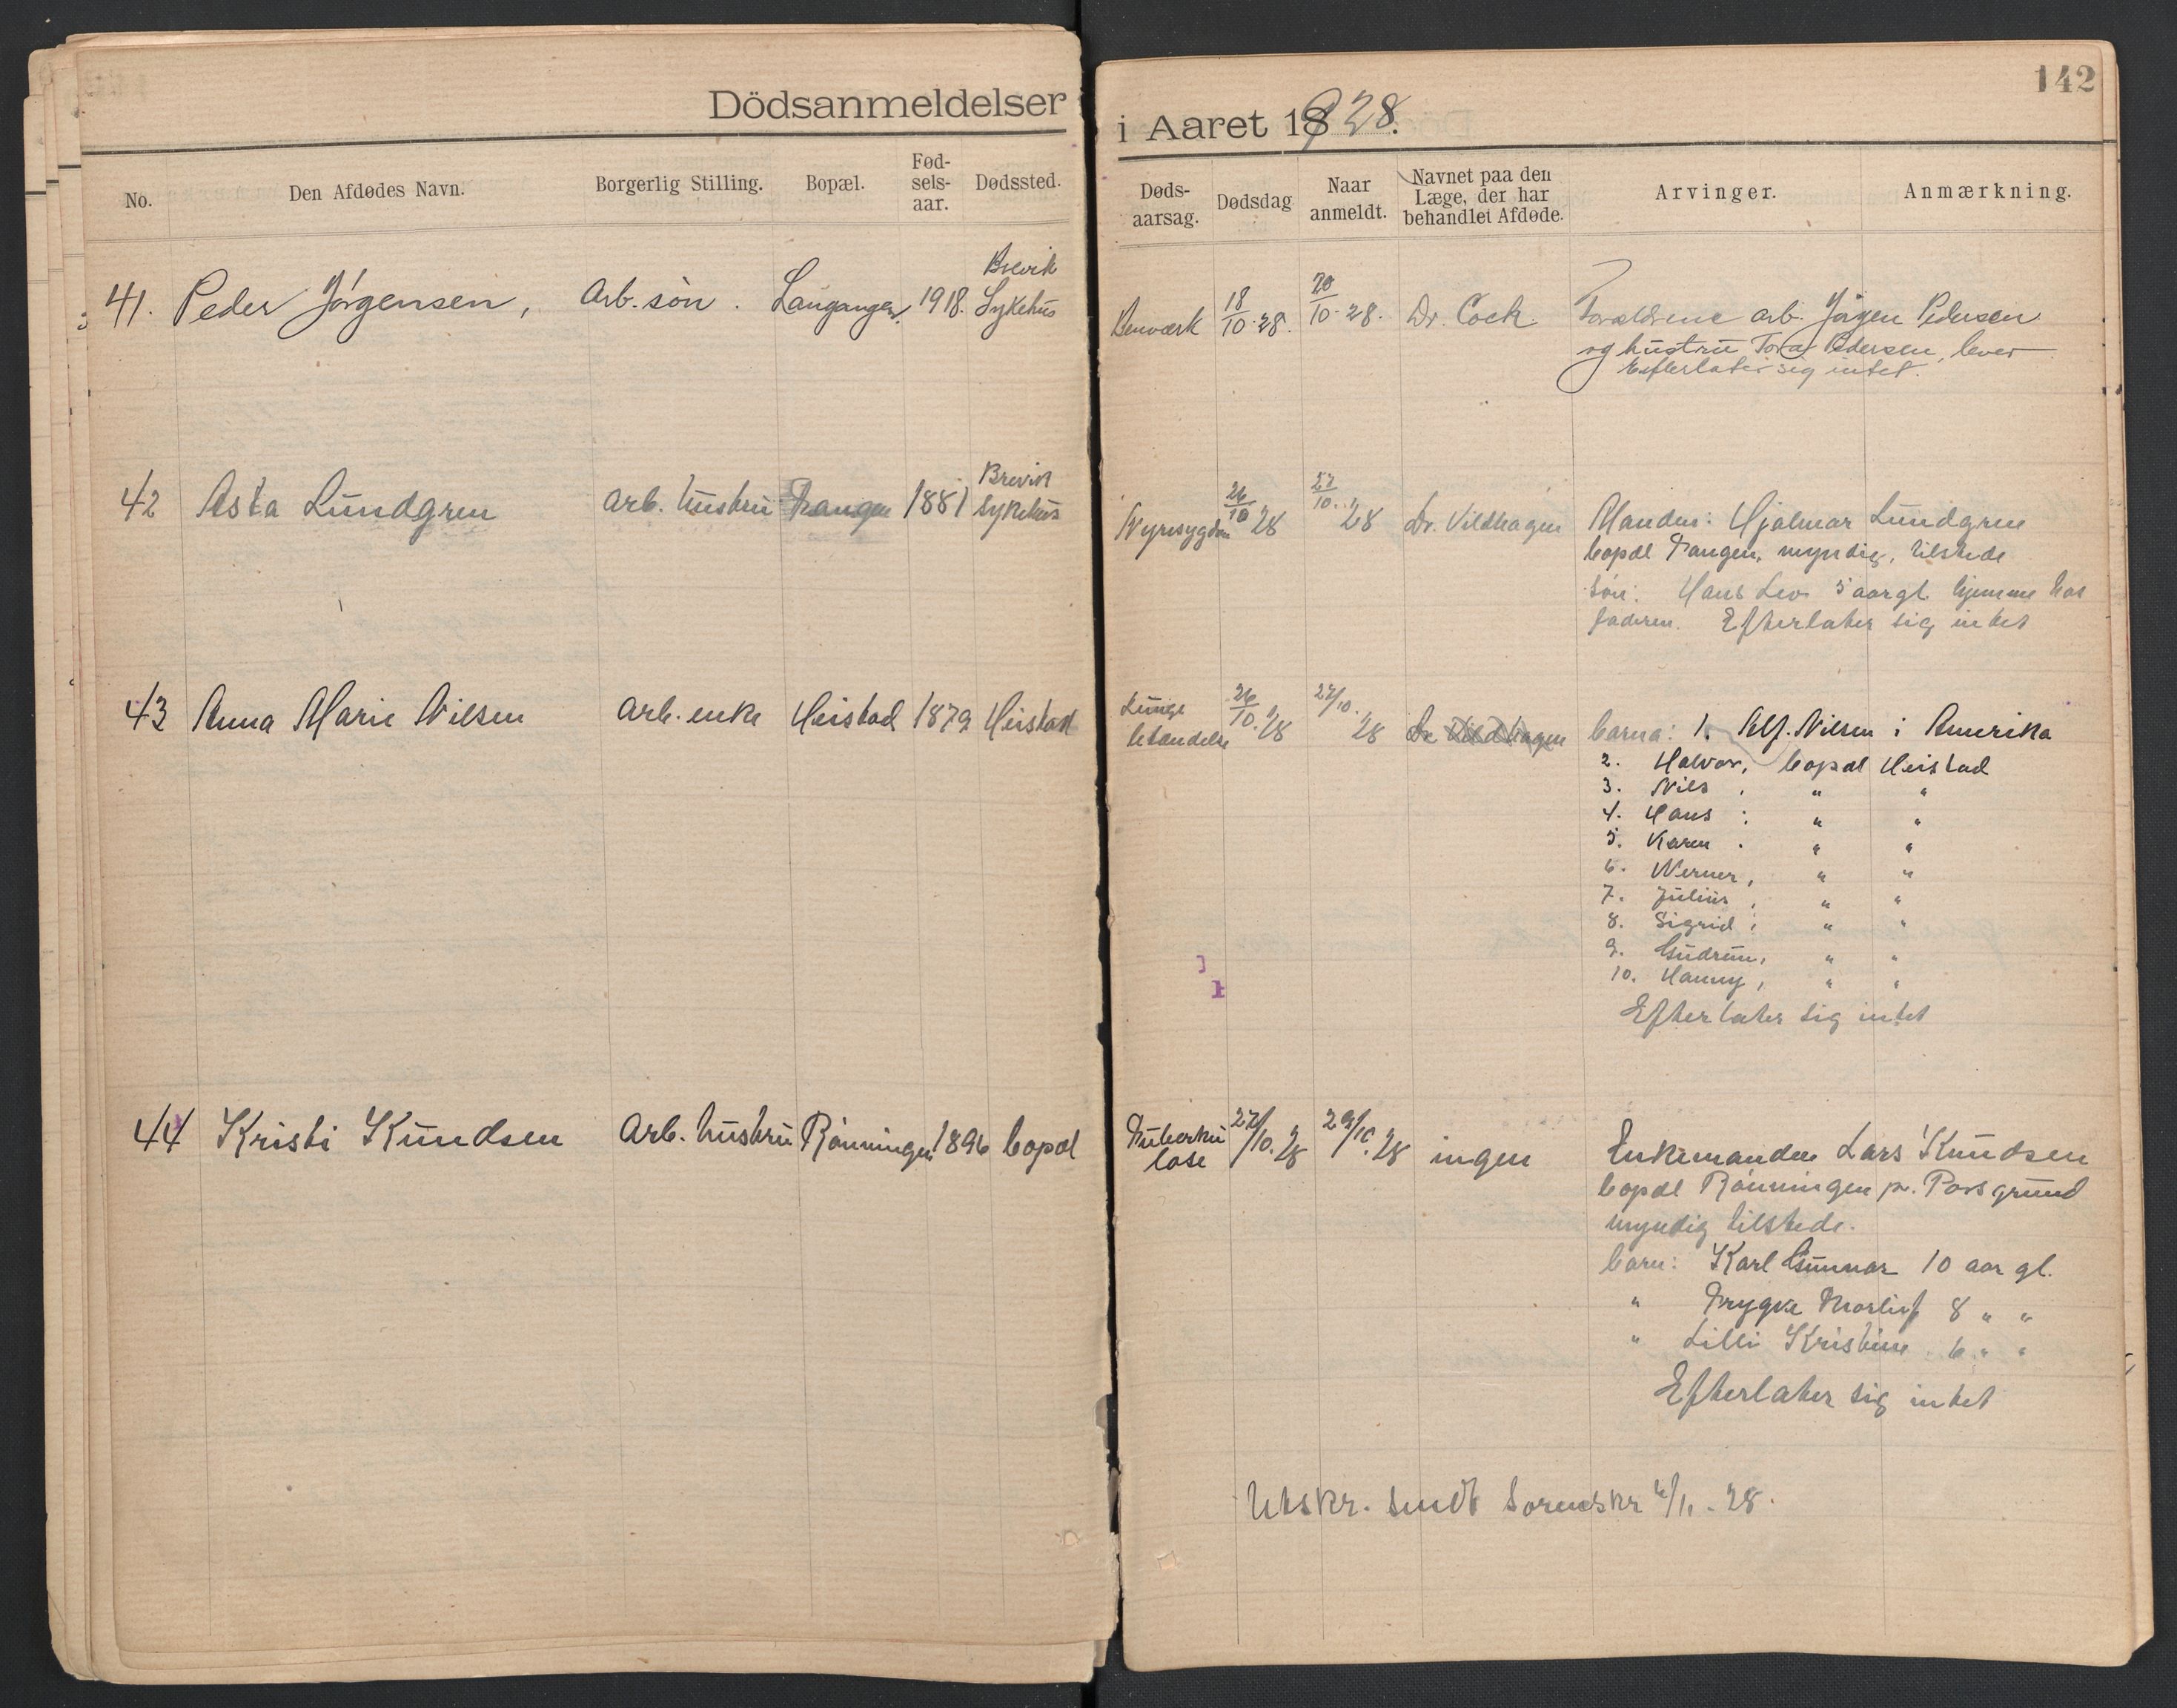 142
Dödsanmeldelser i Aaret 1928.
No. Den Afdødes Navn. Borgerlig Stilling. Bopæl. Fød-sels-aar. Dødssted. Døds-aarsag. Dødsdag Naar anmeldt. Navnet paa den Læge, der har behandlet Afdøde. Arvinger. Anmærkning.
41. Peder Jörgensen, Arb. sön. Langangen. 1918. Brevik Sykehus Benværk 18/10-28. 20/10-28. Dr. Cock. Forældrene arb. Jörgen Pedersen
og hustru Tora Pedersen, lever
Efterlater sig intet.
42 Asta Lundgren Arb. hustru Tangen 1881 Brevik Sykehus Nyresygdom 26/10 28 27/10. 28 Dr. Vildhagen Manden: Hjalmar Lundgren
bopæl Tangen, myndig, tilstede
Sön: Hans Leo 5 aar gl. hjemme hos
faderen. Efterlater sig intet
43 Anna Marie Nilsen Arb. enke Heistad 1879 Heistad Lunge betændelse 26/10. 28 27/10. 28 Dr Vildhagen barna: 1. Alf. Nilsen i Amerika
2. Halvor, bopæl Heistad
3. Nils , " "
4. Hans : " "
5. Karen . " "
6. Werner, " "
7. Julius , " "
8. Sigrid ; " "
9. Gudrun, " "
10. Hanny, " "
Efterlater sig intet
44 Kristi Knudsen Arb. hustru Rönningen 1896 bopæl Tuberku lose 27/10. 28 29/10. 28 ingen Enkemanden Lars Knudsen
bopæl Rönningen pr. Porsgrund
myndig tilstede.
barn: Karl Gunnar 10 aar gl.
" Trygve Thorleif 8 " "
" Lilli Kristine 6 " "
Efterlater sig intet
Utskr. sendt Sorenskr 6/11-28.